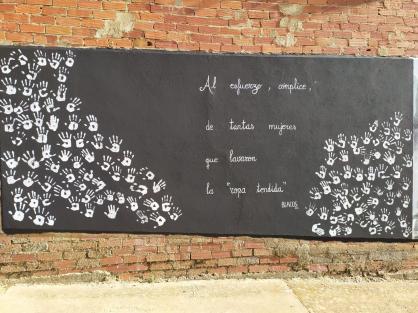 Al esfuerzo, cómplice,
de tantas mujeres
que lavaron
la "ropa tendida"
BLACOS